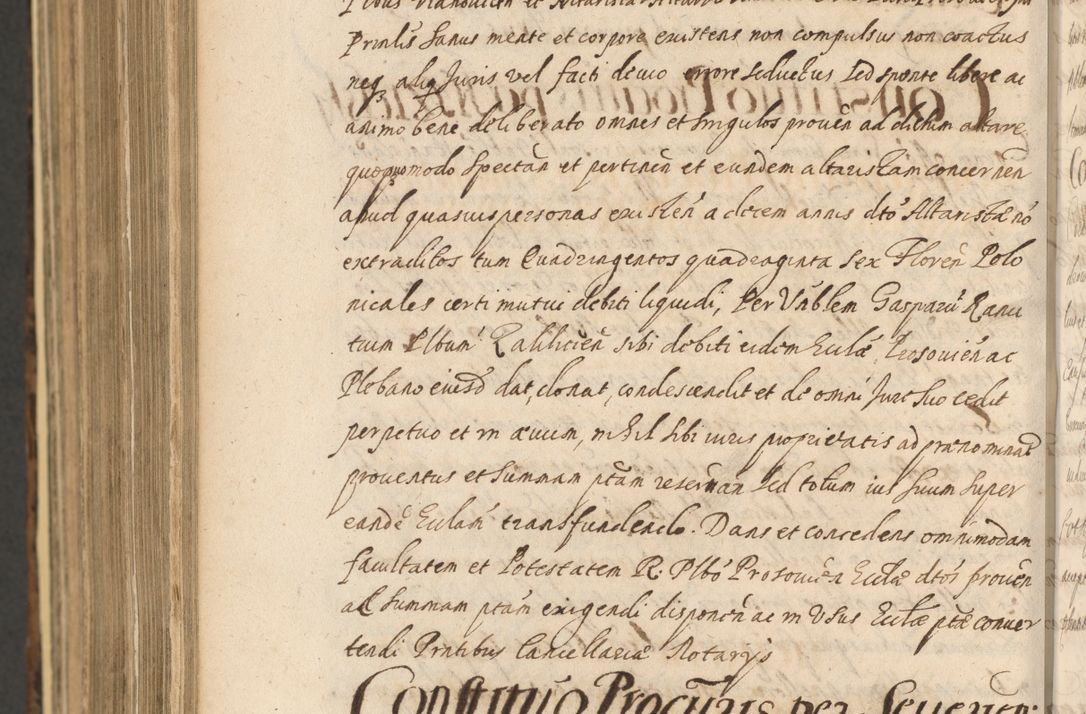 Prnlis sanus mente et corpore existens non compulsus non coactus
neq3 aliq Juris vel facti devio errore seductus sed sponte libere ac
animo bene deliberato omnes et singulos proven ad dictum altare
quoquomodo spectan et pertinen et eundem altaristam concernen
apud quasvis personas existen a decem annis dto Altaristæ no
extraditos tum Quadringentos quadraginta sex Floren Polo
nicales certi mutui debiti liquidi, Per Vnblem Gasparu Ranu
tium Plbum Kalilicien sibi debiti eidem Eccla Prosovien ac
Plebano eiusd dat, donat, condescendit et de omni Jure suo cedit
perpetuo et in ævum, nihil sibi iuris proprietatis ad prænominat
proventus et summam ptam reservan sed totum ius suum super
eande Eclam transfundendo. Dans et concedens omnimodam
facultatem et Potestatem R. Plbo Prosovien Eccle dtos proven
ac summam ptam exigendi disponen ac in Vsus Eclæ ptæ conver
tendi Pnntibus Cancellariæ Notarys
Constitutio Procuris per